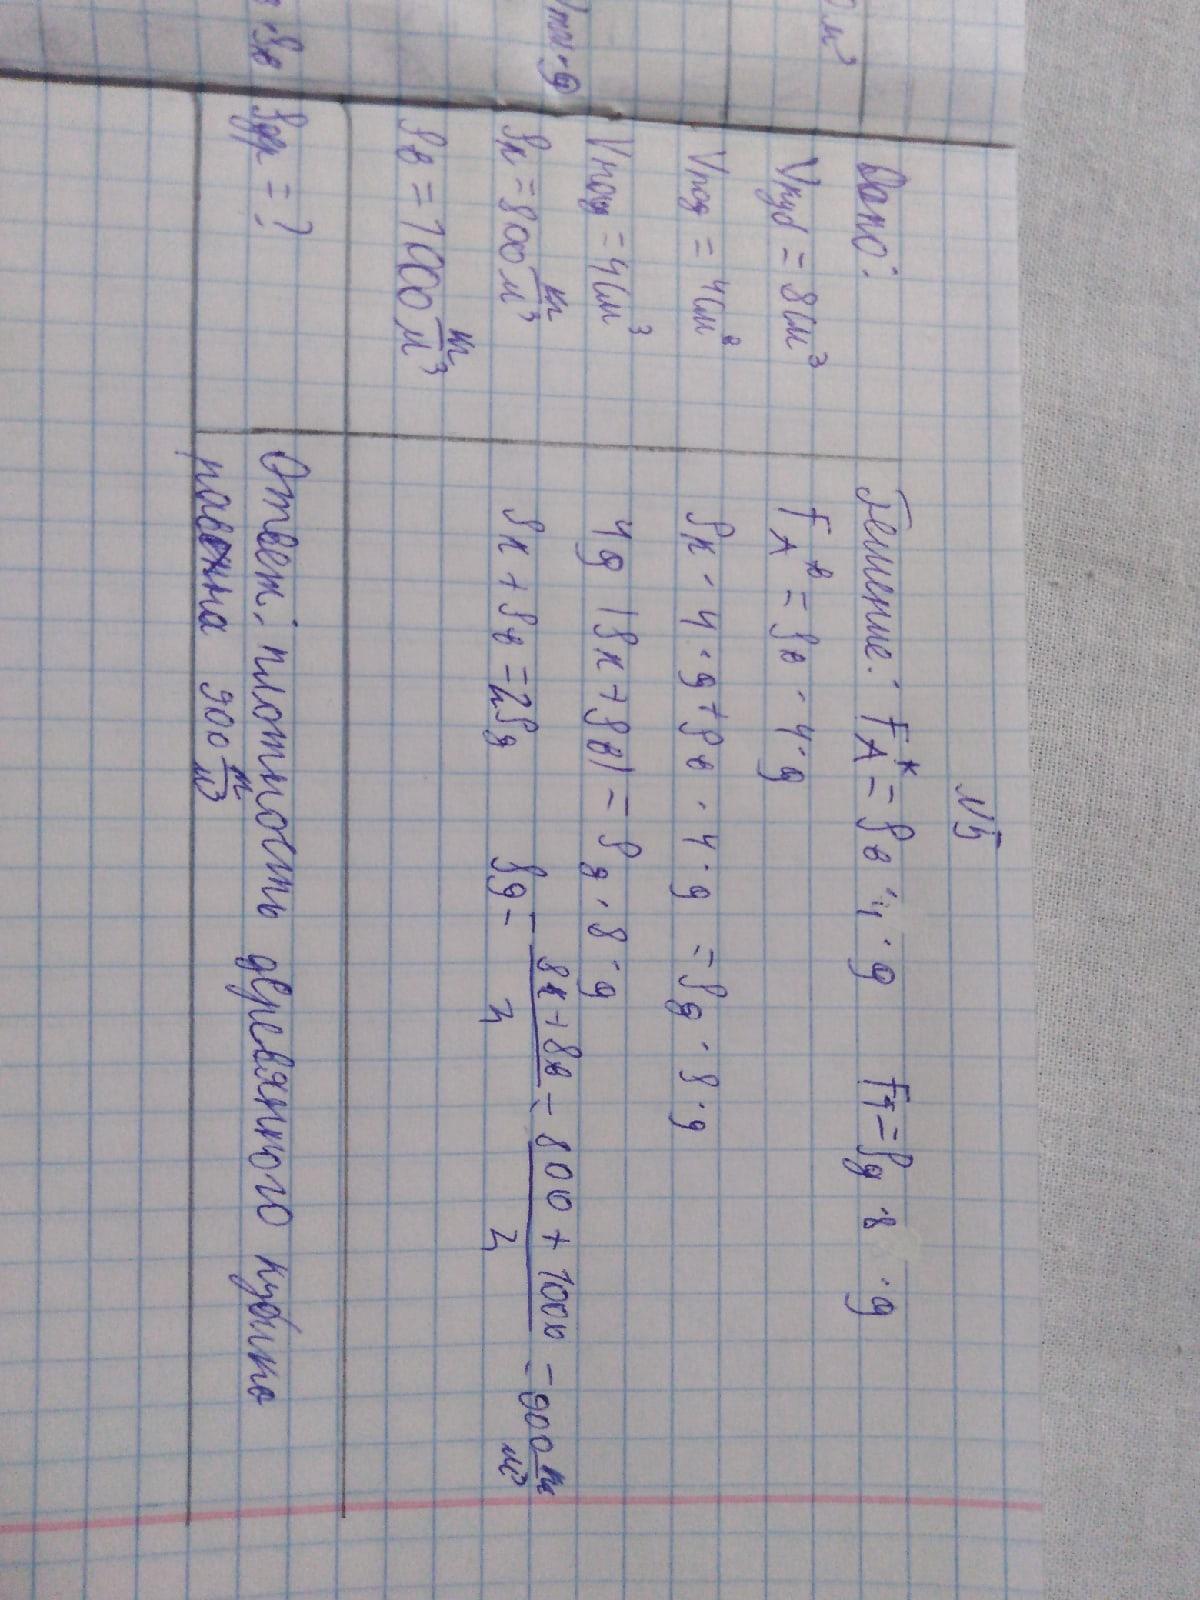 N5
Дано:
Vкуб = 8см³
Vпод = 4см²
Vпод = 4см³
ρк = 800 кг/м³
ρв = 1000 кг/м³
ρдр = ?
Решение: FAᴷ = ρв · 4 · g   FT = ρд · 8 · g
FAᴮ = ρв · 4 · g
ρк · 4 · g + ρв · 4 · g = ρд · 8 · g
4g (ρк + ρв) = ρд · 8 · g
ρк + ρв = 2ρд   ρд = (ρк + ρв)/2 = (800 + 1000)/2 = 900 кг/м³
Ответ: плотность деревянного кубика
равна 900 кг/м³